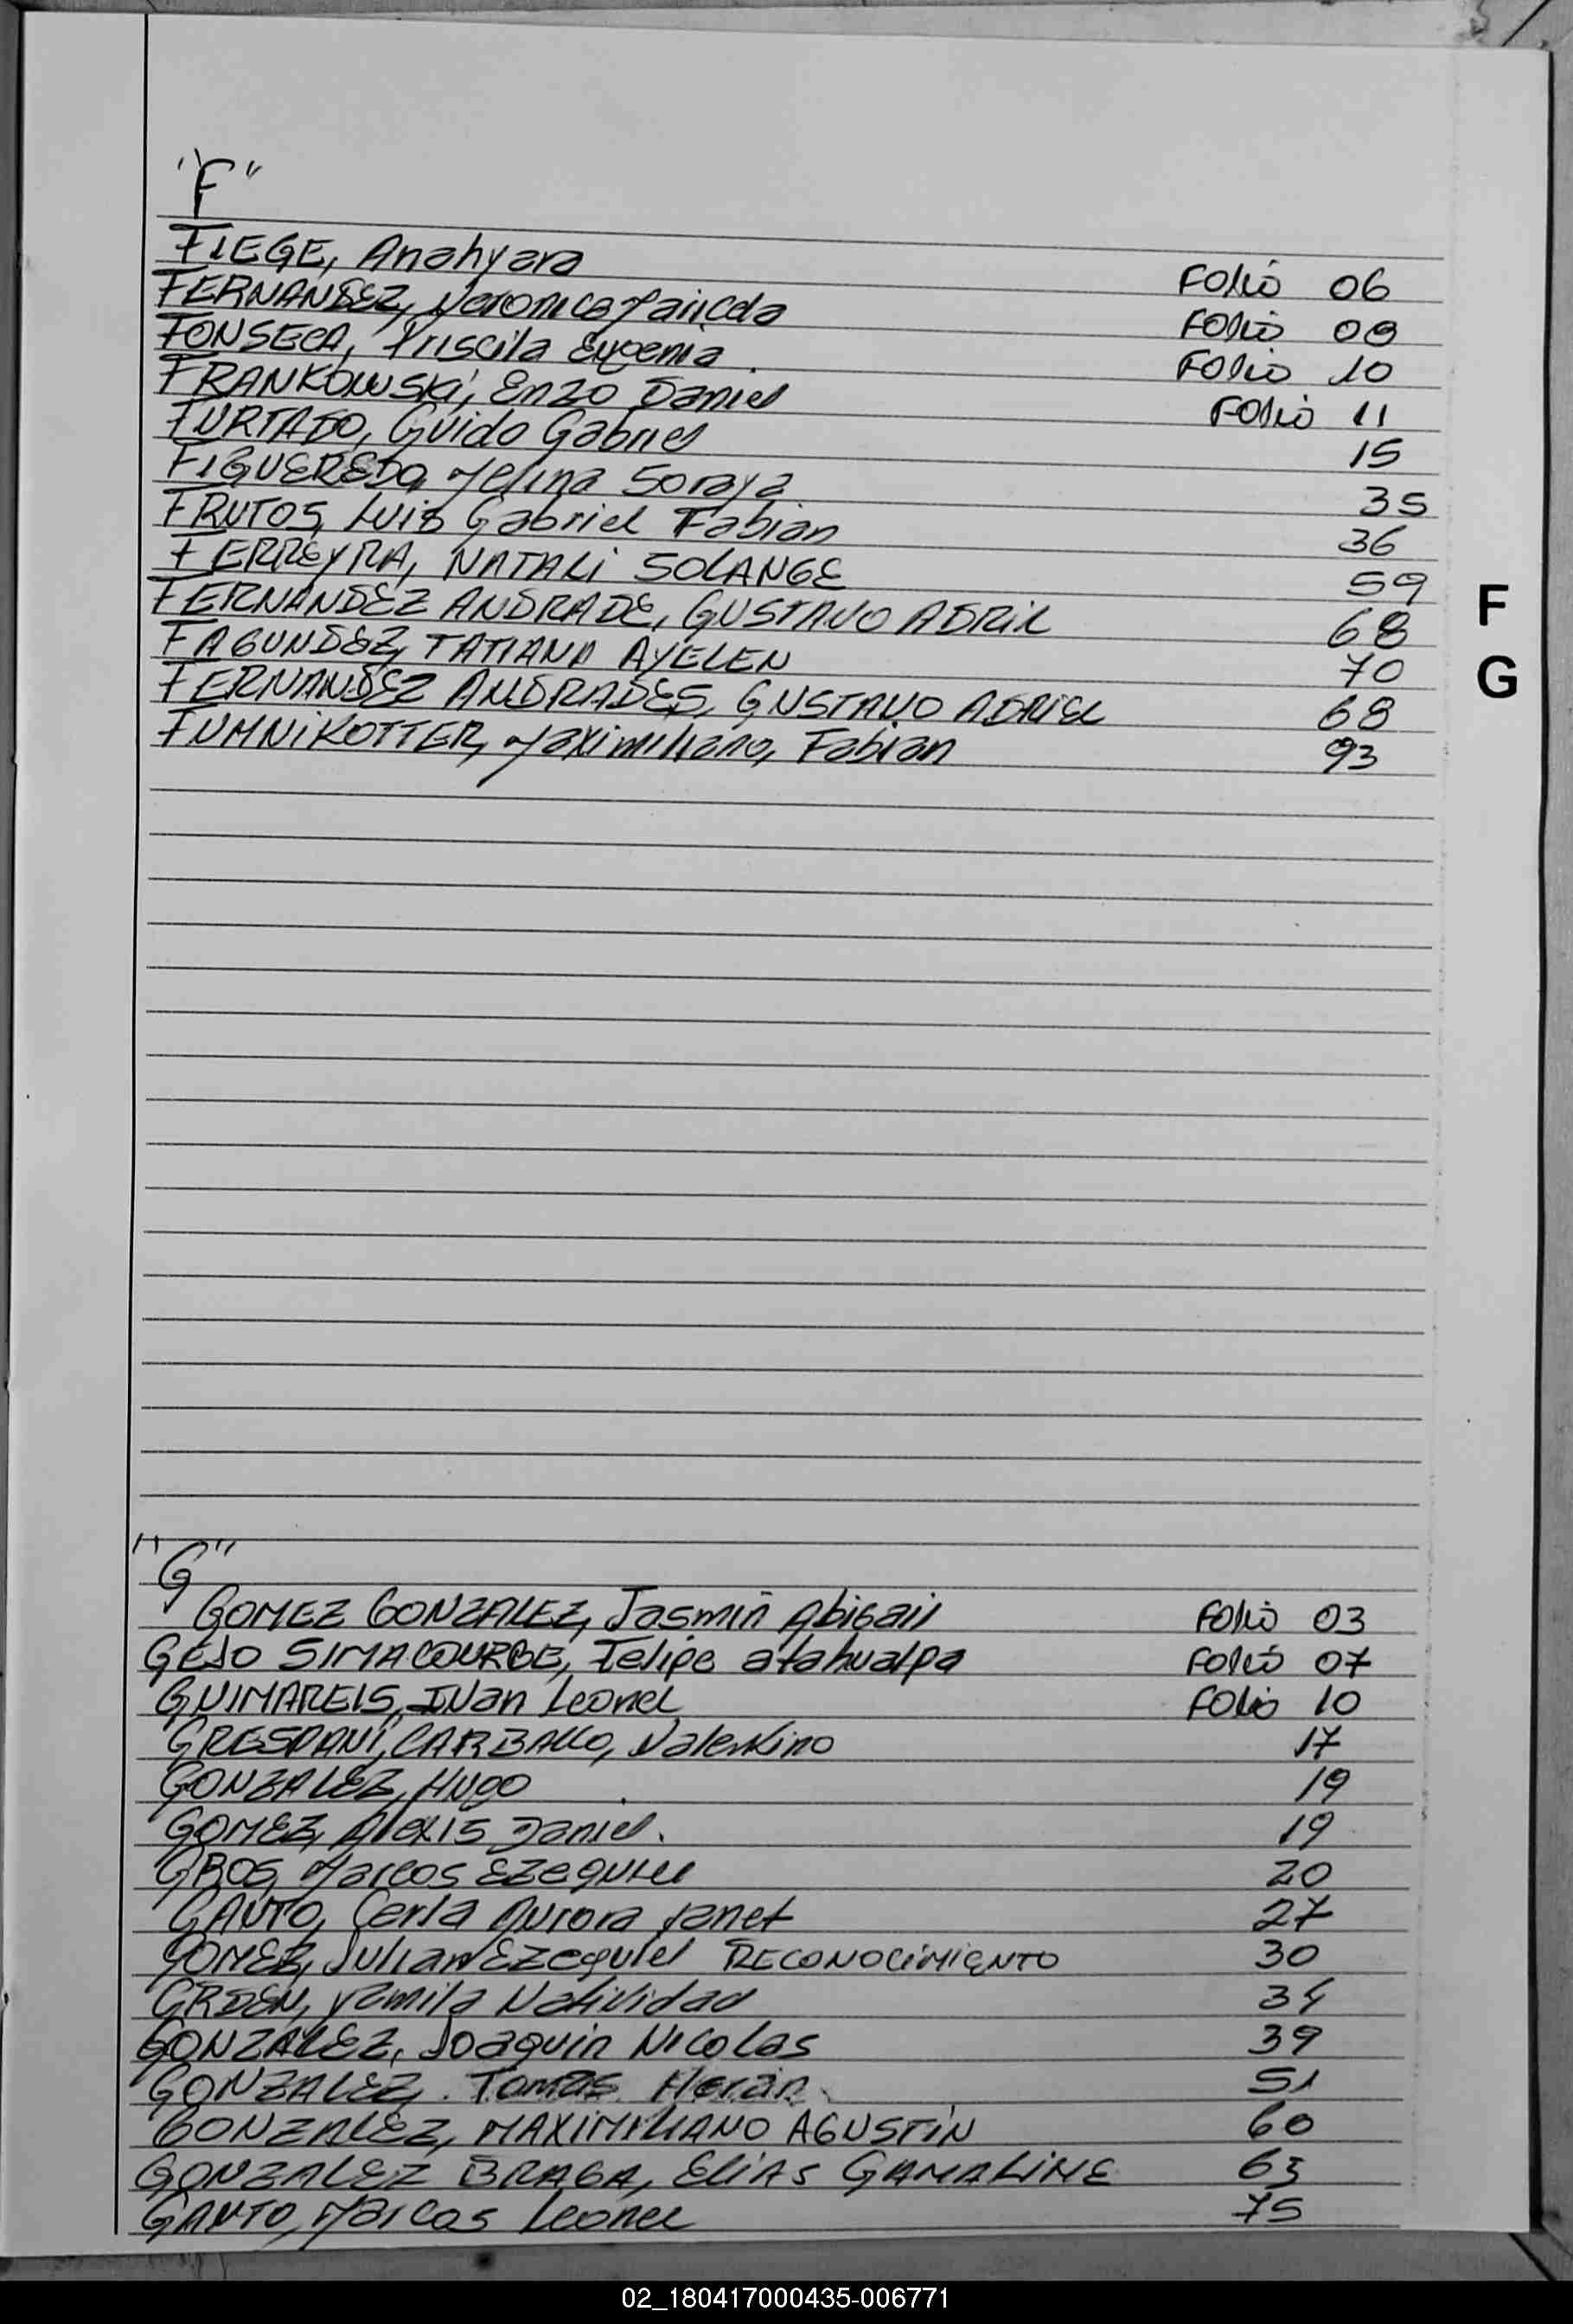 "F"
FIEGE, Anahyara Folio 06
FERNANDEZ, Veronica Folio 09
FONSECA, Priscila Eugenia Folio 10
FRANKOWSKI, Enzo Daniel Folio 11
FURTADO, Guido Gabriel 15
FIGUEREDO, Melina Soraya 35
FRUTOS, Luis Gabriel Fabian 36
FERREYRA, NATALI SOLANGE 59
FERNANDEZ ANDRADE, GUSTAVO ADRIL 68
F
FAGUNDEZ, TATIANA AYELEN 70
G
FERNANDEZ ANDRADES, GUSTAVO ADRIEL 68
FUMNIKOTTER, Maximiliano, Fabian 93
"G"
GOMEZ GONZALEZ, Jasmin Abigail Folio 03
GEJO SIMACOURBE, Felipe atahualpa Folio 07
GUIMAREIS, Ivan Leonel Folio 10
CARBALLO, Valentino 17
GONZALEZ, Hugo 19
GOMEZ, Alexis Daniel. 19
GROS, Marcos Ezequiel 20
GAUTO, Carla Aurora Janet 27
GOMEZ, Julian Ezequiel RECONOCIMIENTO 30
Yamila Natividad 34
GONZALEZ, Joaquin Nicolas 39
GONZALEZ, Tomas 51
GONZALEZ, MAXIMILIANO AGUSTIN 60
GONZALEZ BRAGA, ELIAS GAMALINE 63
GAUTO, Marcos Leonel 75
02_180417000435-006771